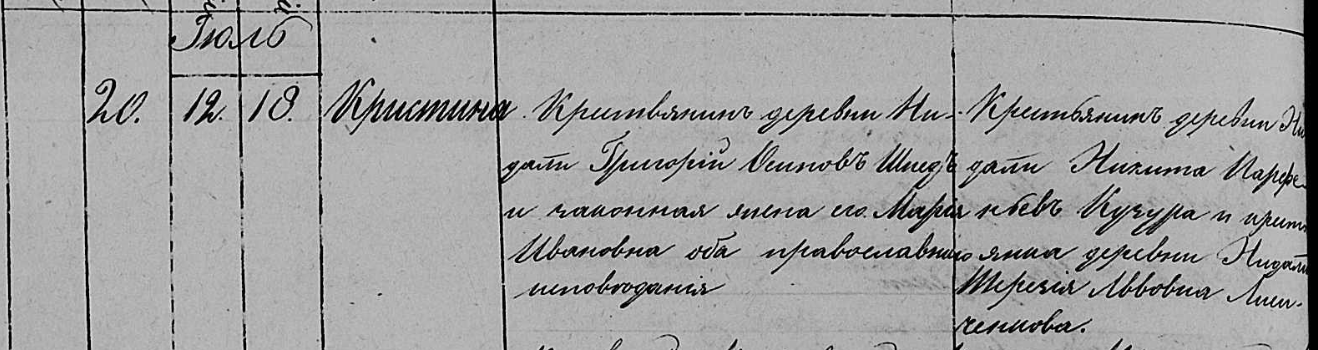 Іюль
20. 12. 18. Кристина
Крестьянинъ деревни Ни-
дали Григорій Осиповъ Шведъ
и законная жена его Марія
Ивановна оба православнаго
исповѣданія
Крестьянинъ деревни Ни
дали Никита Парфе-
ньевъ Кучура и крест
янка деревни Нидали
Терезія Львовна
ченкова.